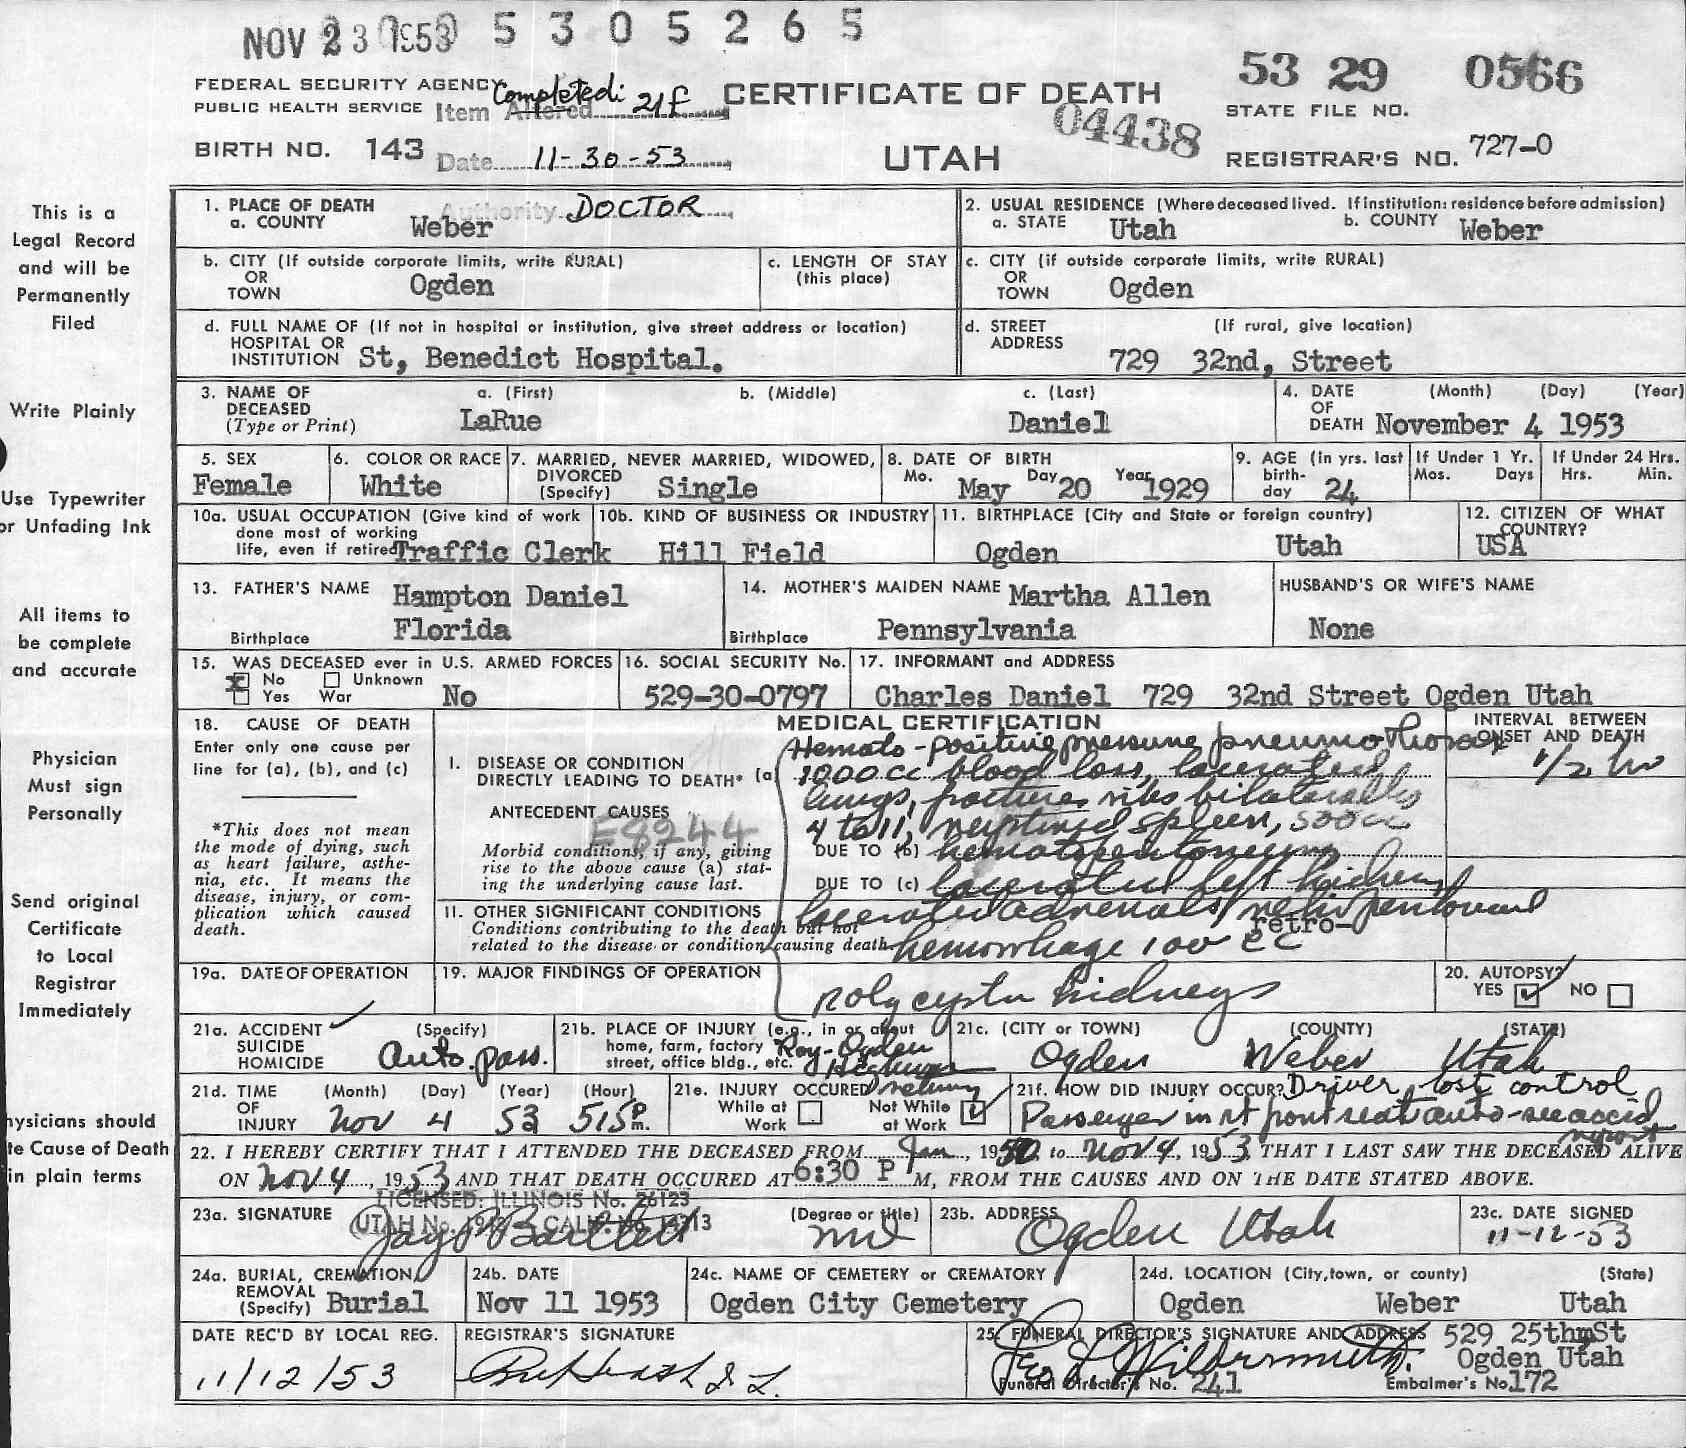 NOV 23 1953 5 3 0 5 2 6 5
53 29 0566
FEDERAL SECURITY AGENCY
PUBLIC HEALTH SERVICE
Completed: 21f
Item Altered
CERTIFICATE OF DEATH
04438
STATE FILE NO.
BIRTH NO. 143
Date 11-30-53
UTAH
REGISTRAR'S NO. 727-0
Authority DOCTOR
This is a
Legal Record
and will be
Permanently
Filed
Write Plainly
Use Typewriter
or Unfading Ink
All items to
be complete
and accurate
Physician
Must sign
Personally
Send original
Certificate
to Local
Registrar
Immediately
hysicians should
te Cause of Death
in plain terms
1. PLACE OF DEATH
a. COUNTY Weber
2. USUAL RESIDENCE (Where deceased lived. If institution: residence before admission)
a. STATE Utah b. COUNTY Weber
b. CITY (If outside corporate limits, write RURAL)
OR
TOWN Ogden
c. LENGTH OF STAY
(this place)
c. CITY (if outside corporate limits, write RURAL)
OR
TOWN Ogden
d. FULL NAME OF (If not in hospital or institution, give street address or location)
HOSPITAL OR
INSTITUTION St, Benedict Hospital.
d. STREET (If rural, give location)
ADDRESS
729 32nd, Street
3. NAME OF
DECEASED
(Type or Print)
a. (First) b. (Middle) c. (Last)
LaRue Daniel
4. DATE (Month) (Day) (Year)
OF
DEATH November 4 1953
5. SEX
Female
6. COLOR OR RACE
White
7. MARRIED, NEVER MARRIED, WIDOWED,
DIVORCED
(Specify) Single
8. DATE OF BIRTH
Mo. May Day 20 Year 1929
9. AGE (In yrs. last
birth-
day 24
If Under 1 Yr.
Mos. Days
If Under 24 Hrs.
Hrs. Min.
10a. USUAL OCCUPATION (Give kind of work
done most of working
life, even if retired Traffic Clerk
10b. KIND OF BUSINESS OR INDUSTRY
Hill Field
11. BIRTHPLACE (City and State or foreign country)
Ogden Utah
12. CITIZEN OF WHAT
COUNTRY?
USA
13. FATHER'S NAME Hampton Daniel
Birthplace Florida
14. MOTHER'S MAIDEN NAME Martha Allen
Birthplace Pennsylvania
HUSBAND'S OR WIFE'S NAME
None
15. WAS DECEASED ever in U.S. ARMED FORCES
x No Unknown
Yes War No
16. SOCIAL SECURITY No.
529-30-0797
17. INFORMANT and ADDRESS
Charles Daniel 729 32nd Street Ogden Utah
18. CAUSE OF DEATH
Enter only one cause per
line for (a), (b), and (c)
*This does not mean
the mode of dying, such
as heart failure, asthe-
nia, etc. It means the
disease, injury, or com-
plication which caused
death.
MEDICAL CERTIFICATION
INTERVAL BETWEEN
ONSET AND DEATH
1/2 hr
I. DISEASE OR CONDITION
DIRECTLY LEADING TO DEATH* (a)
Hemato-positive pressure pneumothorax
1000 cc blood loss, lacerated
lungs, fractures ribs bilaterally
4 to 11, ruptured spleen, 500 cc
ANTECEDENT CAUSES
E8244
Morbid conditions, if any, giving
rise to the above cause (a) stat-
ing the underlying cause last.
DUE TO (b) hematoperitoneum
DUE TO (c) lacerated left kidney
II. OTHER SIGNIFICANT CONDITIONS
Conditions contributing to the death but not
related to the disease or condition causing death.
lacerated adrenals, retroperitoneal
retro-
hemorrhage 100 cc
19a. DATE OF OPERATION
19. MAJOR FINDINGS OF OPERATION
polycystic kidneys
20. AUTOPSY?
YES ✓ NO
21a. ACCIDENT ✓ (Specify)
SUICIDE
HOMICIDE auto. pass.
21b. PLACE OF INJURY (e.g., in or about
home, farm, factory
street, office bldg., etc.
Roy-Ogden
Highway
21c. (CITY or TOWN) (COUNTY) (STATE)
Ogden Weber Utah
21d. TIME (Month) (Day) (Year) (Hour)
OF
INJURY Nov 4 53 515 P m.
21e. INJURY OCCURED
While at Work
Not While at Work ✓
21f. HOW DID INJURY OCCUR? Driver lost control
Passenger in rt front seat auto-see accid
report
22. I HEREBY CERTIFY THAT I ATTENDED THE DECEASED FROM Jan, 1950, to Nov 4, 1953, THAT I LAST SAW THE DECEASED ALIVE
ON Nov 4, 1953 AND THAT DEATH OCCURED AT 6:30 P M, FROM THE CAUSES AND ON THE DATE STATED ABOVE.
LICENSED: ILLINOIS No. 26123
23a. SIGNATURE Jay P Bartlett
(Degree or title) MD
23b. ADDRESS Ogden Utah
23c. DATE SIGNED
11-12-53
24a. BURIAL, CREMATION,
REMOVAL
(Specify) Burial
24b. DATE
Nov 11 1953
24c. NAME OF CEMETERY or CREMATORY
Ogden City Cemetery
24d. LOCATION (City, town, or county) (State)
Ogden Weber Utah
DATE REC'D BY LOCAL REG.
11/12/53
REGISTRAR'S SIGNATURE
25. FUNERAL DIRECTOR'S SIGNATURE AND ADDRESS 529 25th St
Ogden Utah
Funeral Director's No. 241 Embalmer's No. 172